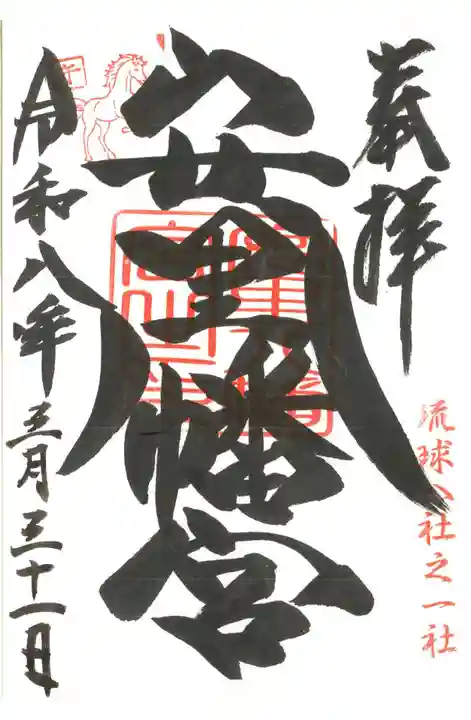 奉拝
琉球八社之一社
安里八幡宮
午
令和八年五月三十一日